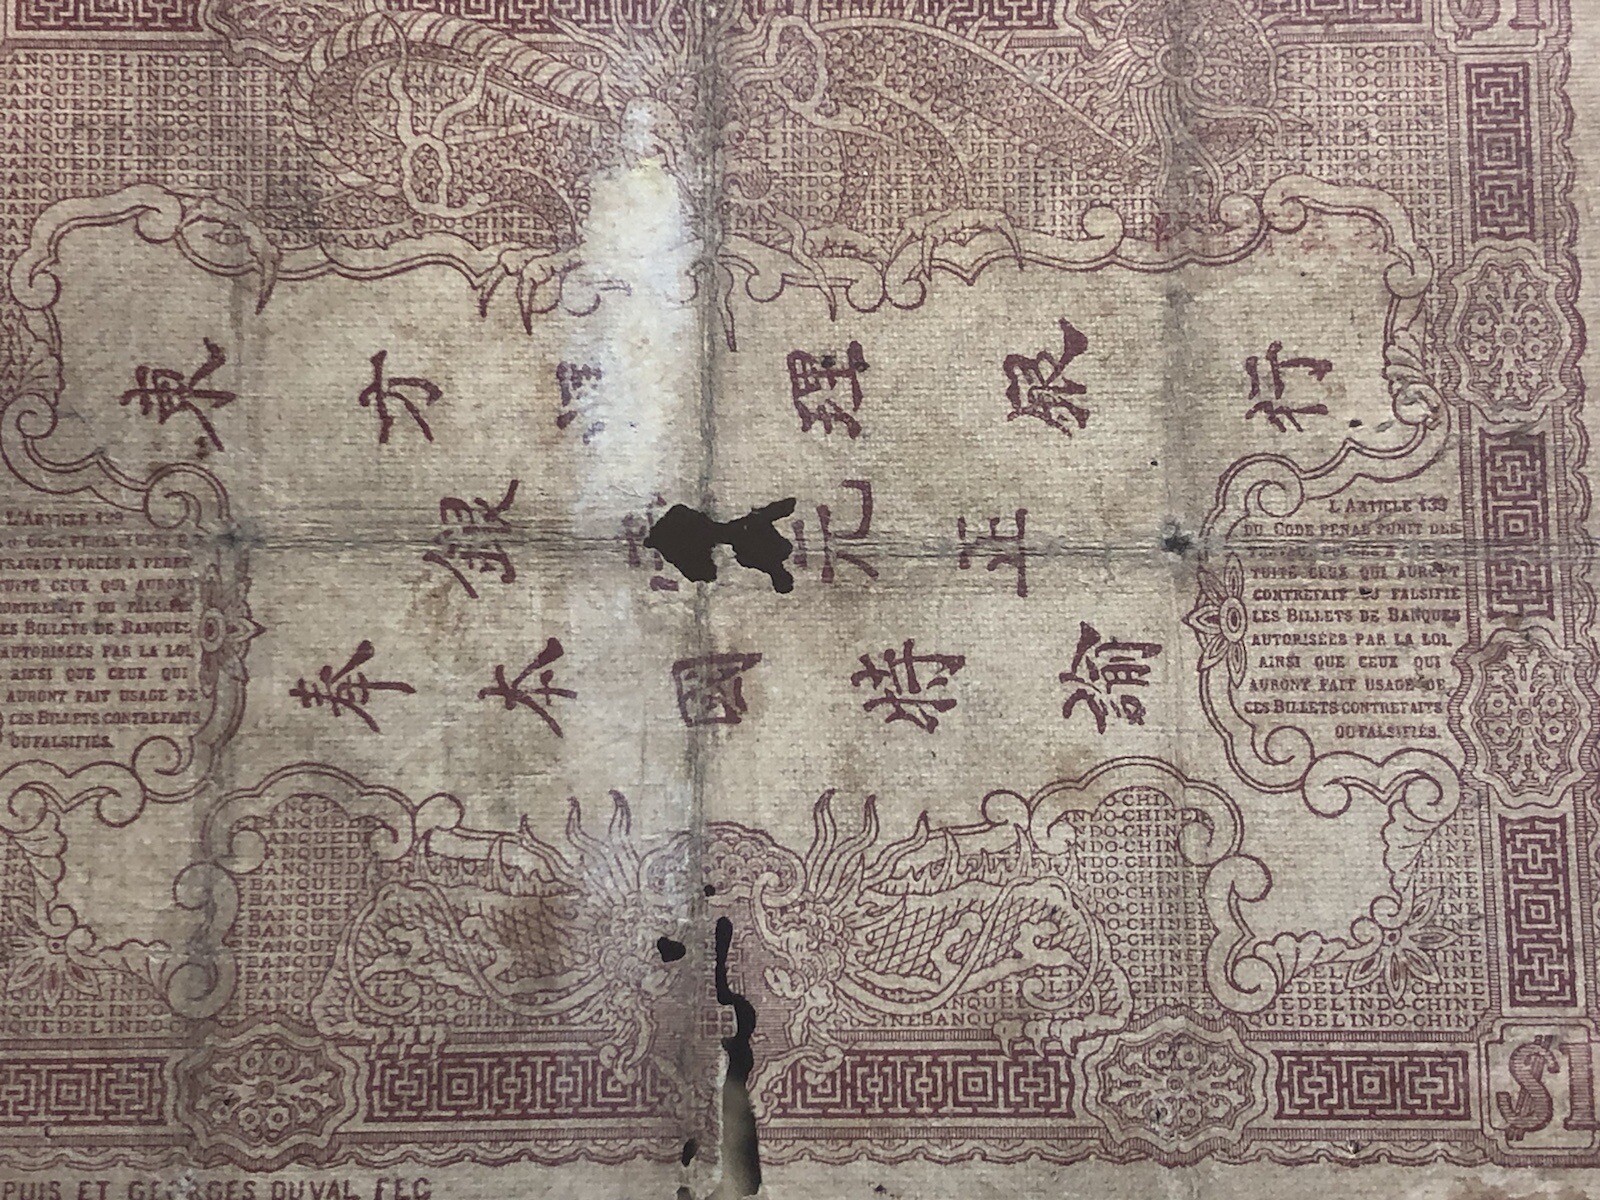 $1
東方滙理銀行
銀元正
奉本國特諭
L'ARTICLE 139
TRAVAUX FORCÉS A PERPE
TUITÉ CEUX QUI AURONT
CONTREFAIT OU FALSIFIÉ
ES BILLETS DE BANQUES
AUTORISÉES PAR LA LOI,
AINSI QUE CEUX QUI
AURONT FAIT USAGE DE
CES BILLETS CONTREFAITS
OU FALSIFIÉS.
L'ARTICLE 139
DU CODE PENAL PUNIT DES
TUITÉ CEUX QUI AURONT
CONTREFAIT OU FALSIFIÉ
LES BILLETS DE BANQUES
AUTORISÉES PAR LA LOI,
AINSI QUE CEUX QUI
AURONT FAIT USAGE DE
CES BILLETS CONTREFAITS
OU FALSIFIÉS.
BANQUE DE L'INDO-CHINE
$1
PUIS ET GEORGES DUVAL FEC